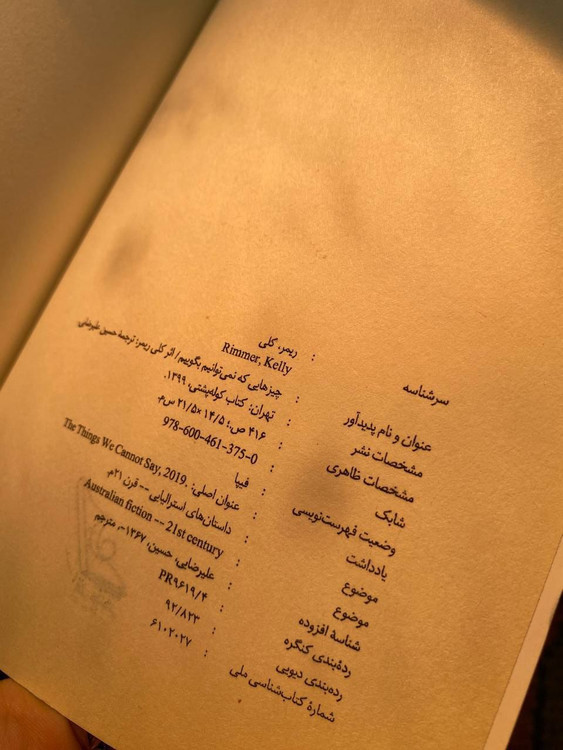 سرشناسه : ریمر، کلی
Rimmer, Kelly
عنوان و نام پدیدآور : چیزهایی که نمی‌توانیم بگوییم/ اثر کلی ریمر؛ ترجمهٔ حسین علیرضایی.
مشخصات نشر : تهران: کتاب کوله‌پشتی، ۱۳۹۹.
مشخصات ظاهری : ۴۱۶ ص.؛ ۱۴/۵×۲۱/۵ س‌م.
شابک : 978-600-461-375-0
وضعیت فهرست‌نویسی : فیپا
یادداشت : عنوان اصلی: The Things We Cannot Say, 2019.
موضوع : داستان‌های استرالیایی -- قرن ۲۱م.
موضوع : Australian fiction -- 21st century
شناسهٔ افزوده : علیرضایی، حسین، ۱۳۶۷-، مترجم
رده‌بندی کنگره : PR۹۶۱۹/۴
رده‌بندی دیویی : ۹۲/۸۲۳
شمارهٔ کتاب‌شناسی ملی : ۶۱۰۲۰۲۷